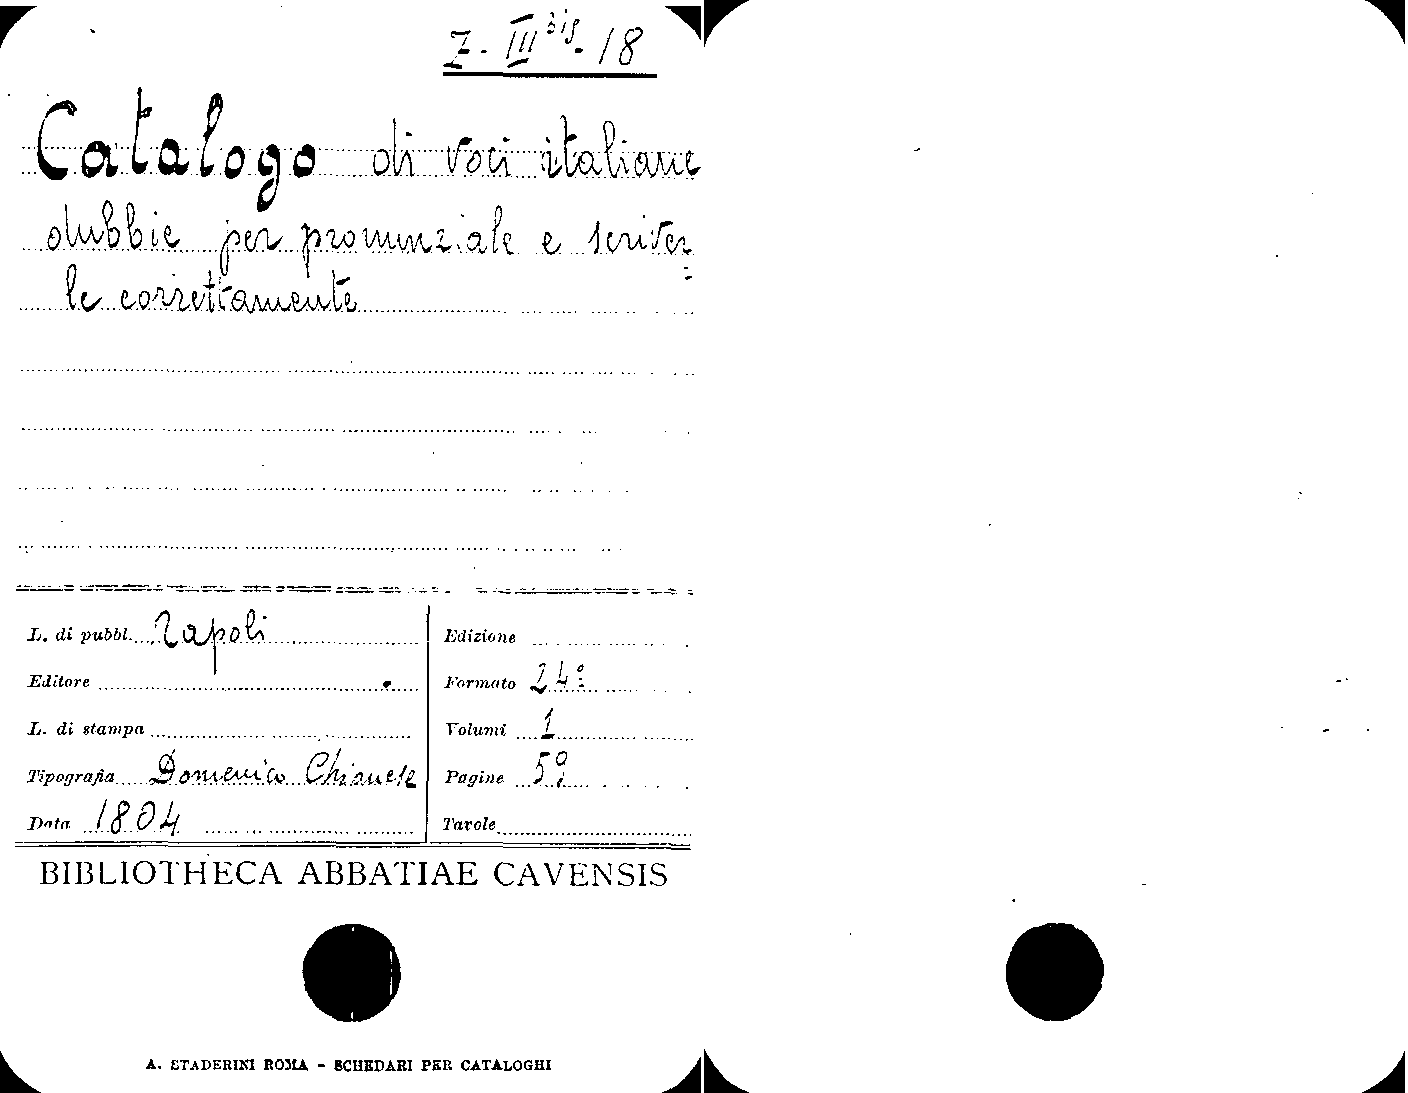 Z-III bis-18
Catalogo di voci italiane
dubbie per pronunziale e scriver=
le correttamente
L. di pubbl. Napoli
Editore
L. di stampa
Tipografia Domenico Chianese
Data 1804
Edizione
Formato 24º
Volumi 1
Pagine
Tavole
BIBLIOTHECA ABBATIAE CAVENSIS
A. STADERINI ROMA - SCHEDARI PER CATALOGHI